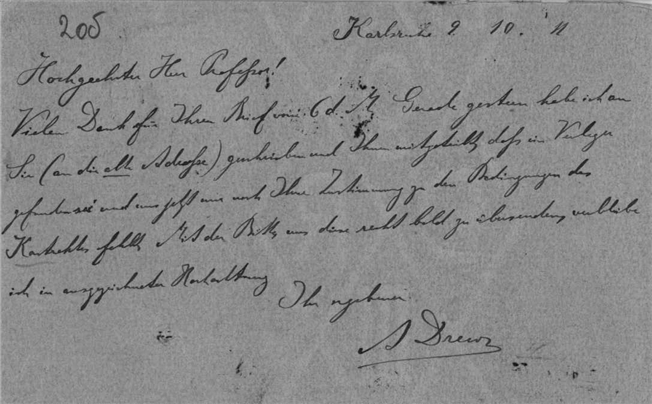 205
Karlsruhe 9 10. 11
Hochgeehrter Herr Professor!
Vielen Dank für Ihren Brief vom 6 d. M. Gerade gestern habe ich an
Sie (an die alte Adresse) geschrieben und Ihnen mitgeteilt, dass ein Verleger
gefunden sei und uns jetzt nur noch Ihre Zustimmung zu den Bedingungen des
Kontraktes fehlt. Mit der Bitte, uns diese recht bald zu übersenden, verbleibe
ich in ausgezeichneter Hochachtung
Ihr ergebener
A Drews